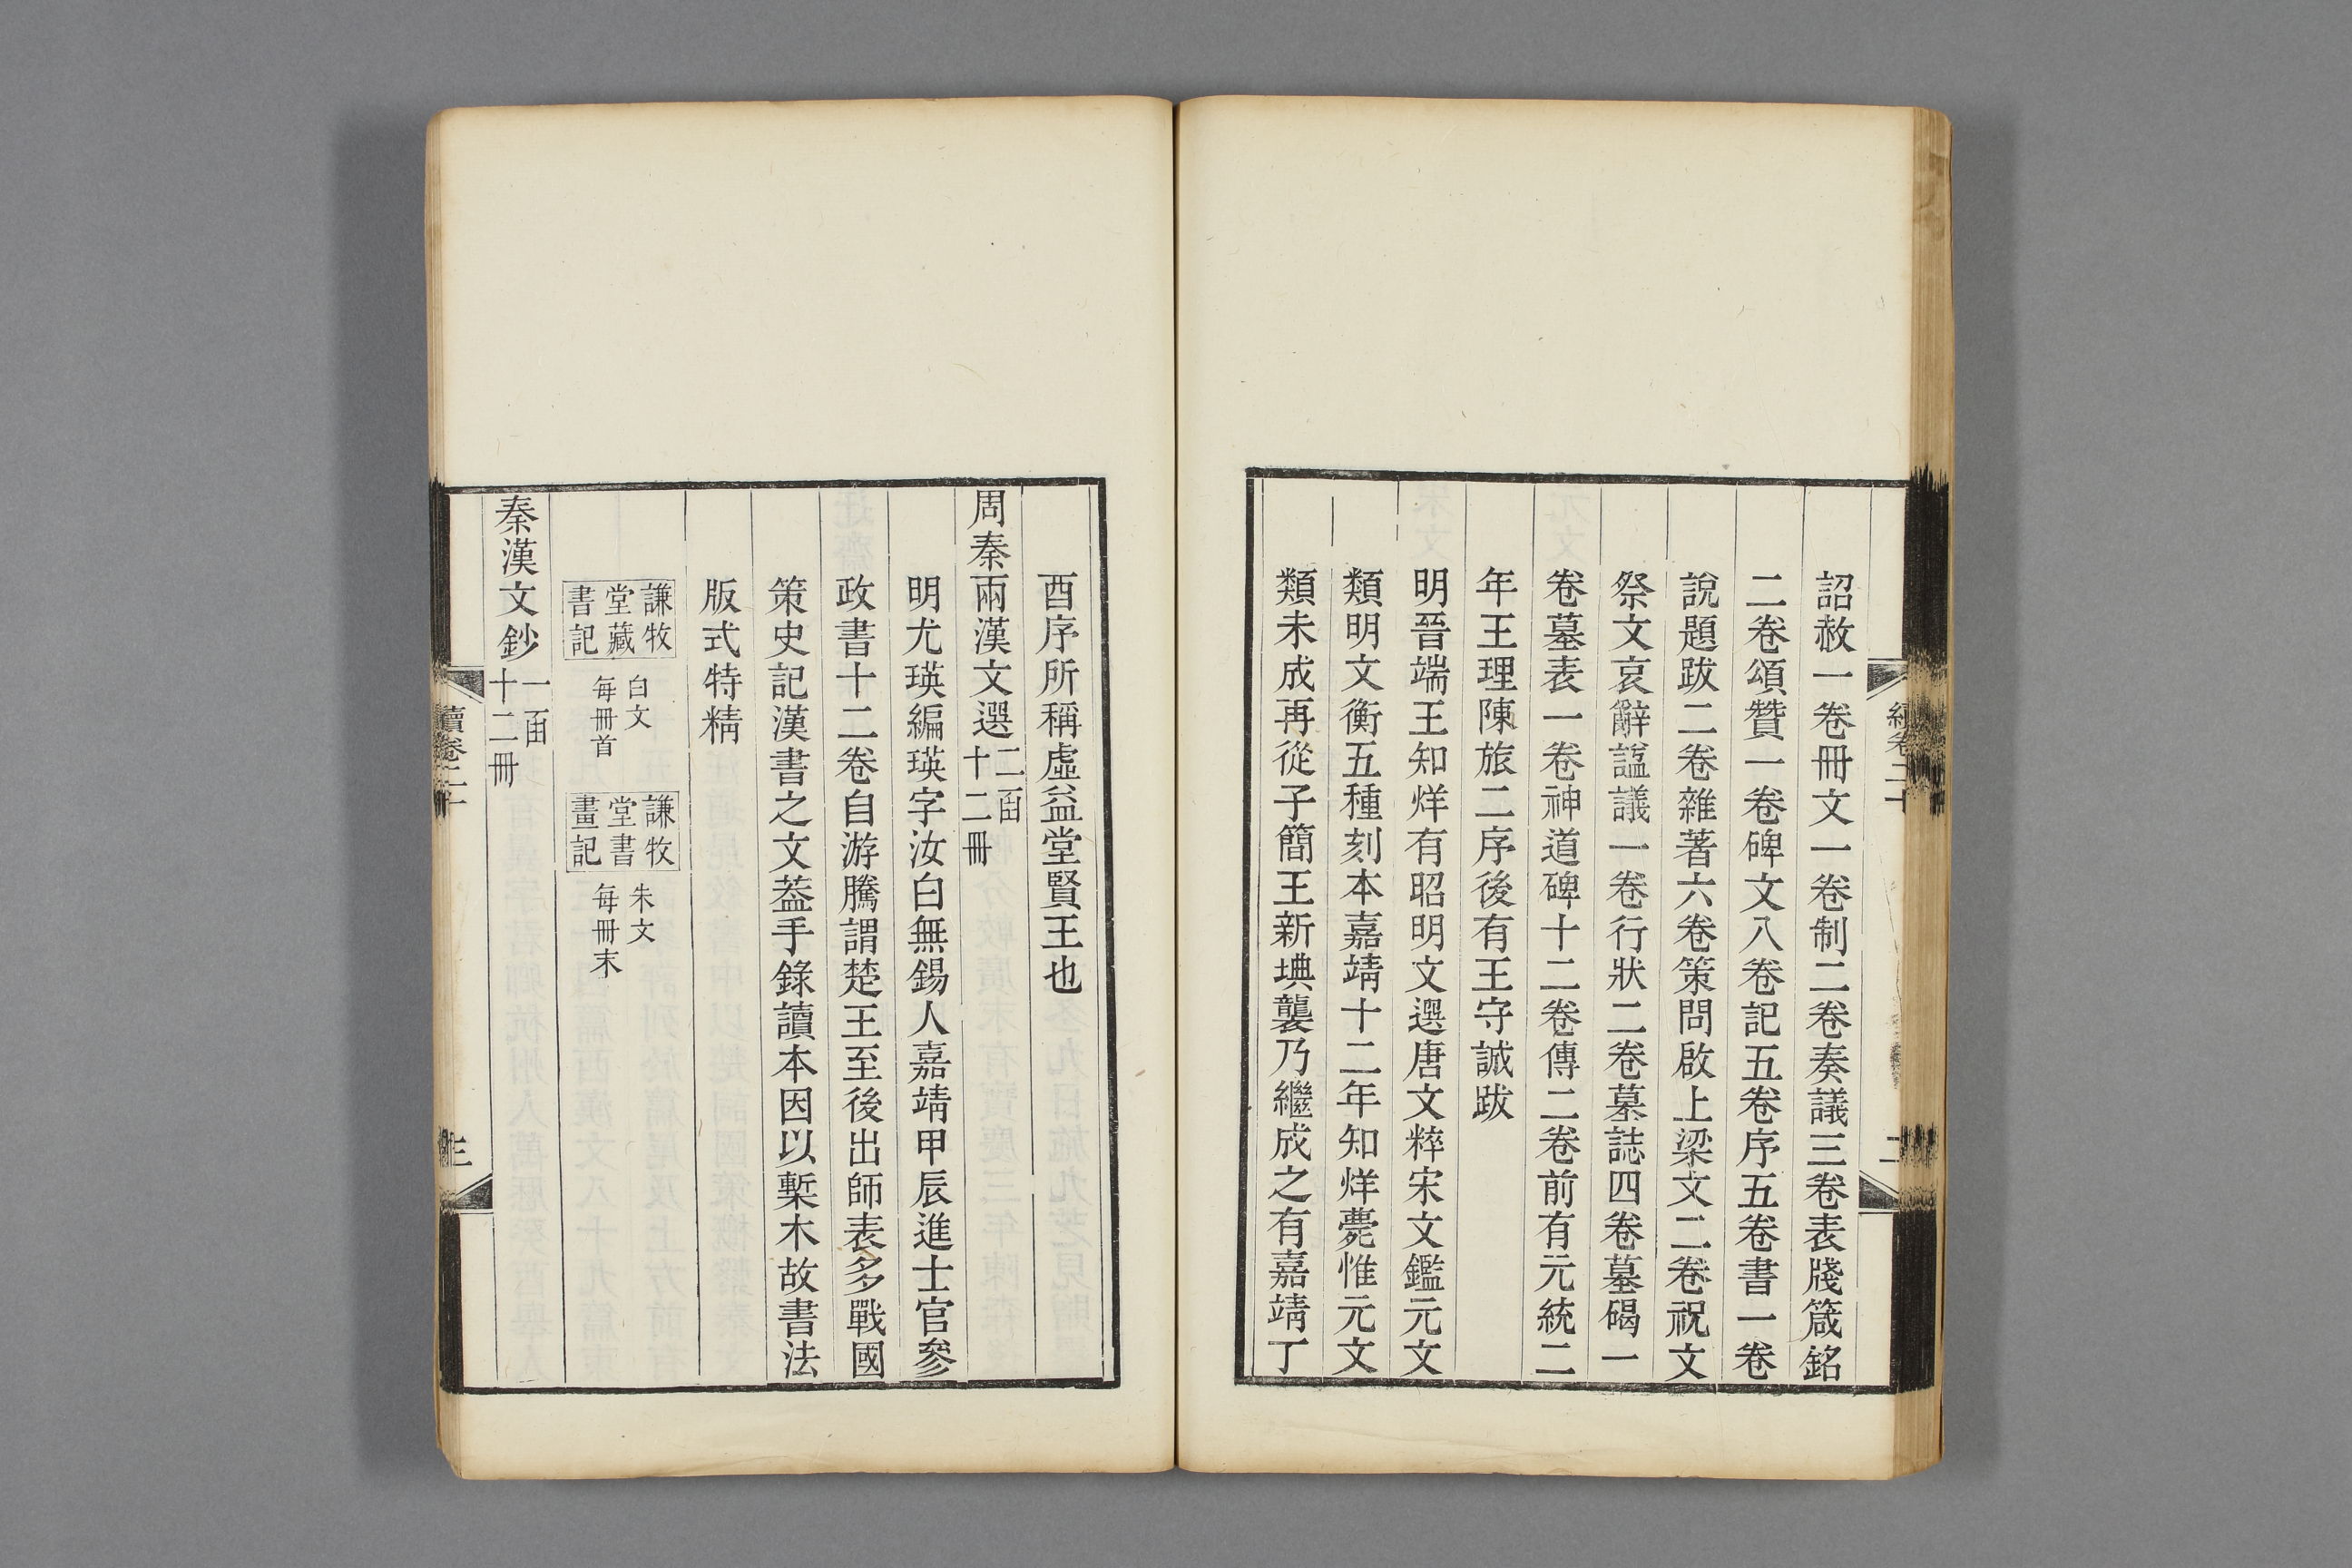 詔赦一卷冊文一卷制二卷奏議三卷表牋箴銘
二卷頌贊一卷碑文八卷記五卷序五卷書一卷
說題跋二卷雜著六卷策問啟上梁文二卷祝文
祭文哀辭謚議一卷行狀二卷墓誌四卷墓碣一
卷墓表一卷神道碑十二卷傳二卷前有元統二
年王理陳旅二序後有王守誠跋
明晉端王知烊有昭明文選唐文粹宋文鑑元文
類明文衡五種刻本嘉靖十二年知烊薨惟元文
類未成再從子簡王新㙉襲乃繼成之有嘉靖丁
續卷二十
二
酉序所稱虛益堂賢王也
周秦兩漢文選二百
十二冊
明尤瑛編瑛字汝白無錫人嘉靖甲辰進士官參
政書十二卷自游騰謂楚王至後出師表多戰國
策史記漢書之文葢手錄讀本因以槧木故書法
版式特精
謙牧
堂藏
書記
白文
每冊首
謙牧
堂書
畫記
朱文
每冊末
秦漢文鈔一百
十二冊
續卷二十
三